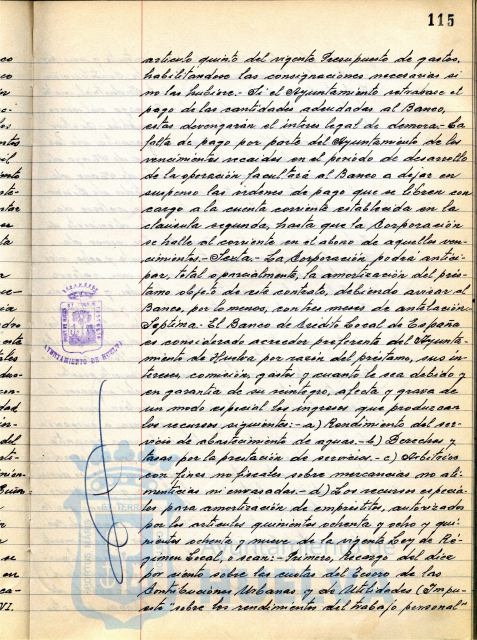 115
artículo quinto del vigente Presupuesto de gastos,
habilitándose las consignaciones necesarias si
no las hubiere.- Si el Ayuntamiento retrasase el
pago de las cantidades adeudadas al Banco,
estas devengarán el interés legal de demora.- La
falta de pago por parte del Ayuntamiento de los
vencimientos recaidos en el periodo de desarrollo
de la operación facultará al Banco a dejar en
suspenso las órdenes de pago que se libren con
cargo a la cuenta corriente establecida en la
cláusula segunda, hasta que la Corporación
se halle al corriente en el abono de aquellos ven-
cimientos.- Sexta.- La Corporación podrá antici-
par, total o parcialmente, la amortización del prés-
tamo objeto de este contrato, debiendo avisar al
Banco, por lo menos, con tres meses de antelación.-
Séptima.- El Banco de Crédito Local de España
es considerado acreedor preferente del Ayunta-
miento de Huelva por razón del préstamo, sus in-
tereses, comisión, gastos y cuanto le sea debido y
en garantía de su reintegro, afecta y grava de
un modo especial los ingresos que produzcan
los recursos siguientes:- a) Rendimiento del ser-
vicio de abastecimiento de aguas.- b) Derechos y
tasas por la prestación de servicios.- c) Arbitrios
con fines no fiscales sobre mercancías no ali-
menticias ni envasadas.- d) Los recursos especia-
les para amortización de empréstitos, autorizados
por los artículos quinientos ochenta y ocho y qui-
nientos ochenta y nueve de la vigente Ley de Ré-
gimen Local, o sean:- Primero, Recargo del diez
por ciento sobre las cuotas del Tesoro de las
Contribuciones Urbanas y de Utilidades (Impu-
esto "sobre los rendimientos del trabajo personal"
AYUNTAMIENTO DE HUELVA